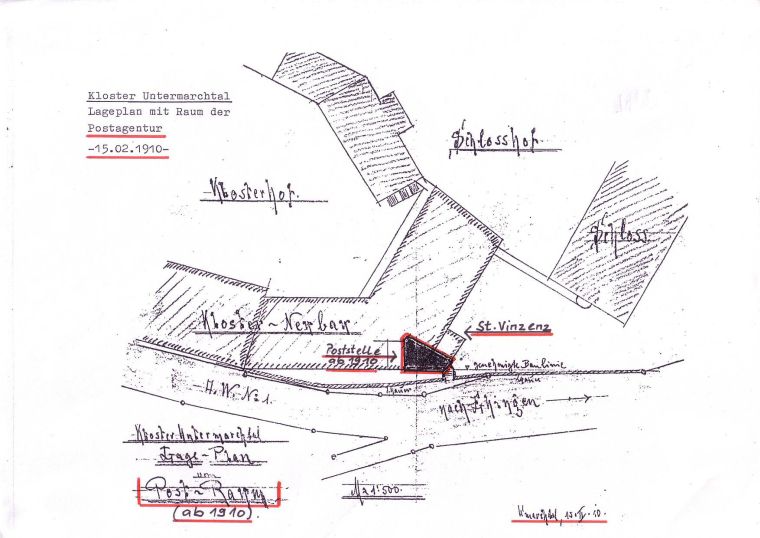 Kloster Untermarchtal
Lageplan mit Raum der
Postagentur
-15.02.1910-
Schlosshof.
Klosterhof.
Schloss.
Kloster-Neubau
St. Vinzenz
Poststelle
ab 1910
genehmigte Baulinie
H. W. No 1.
nach Ehingen
Kloster Untermarchtal
Lage-Plan
vom
Post-Raum
(ab 1910)
M 1:500.